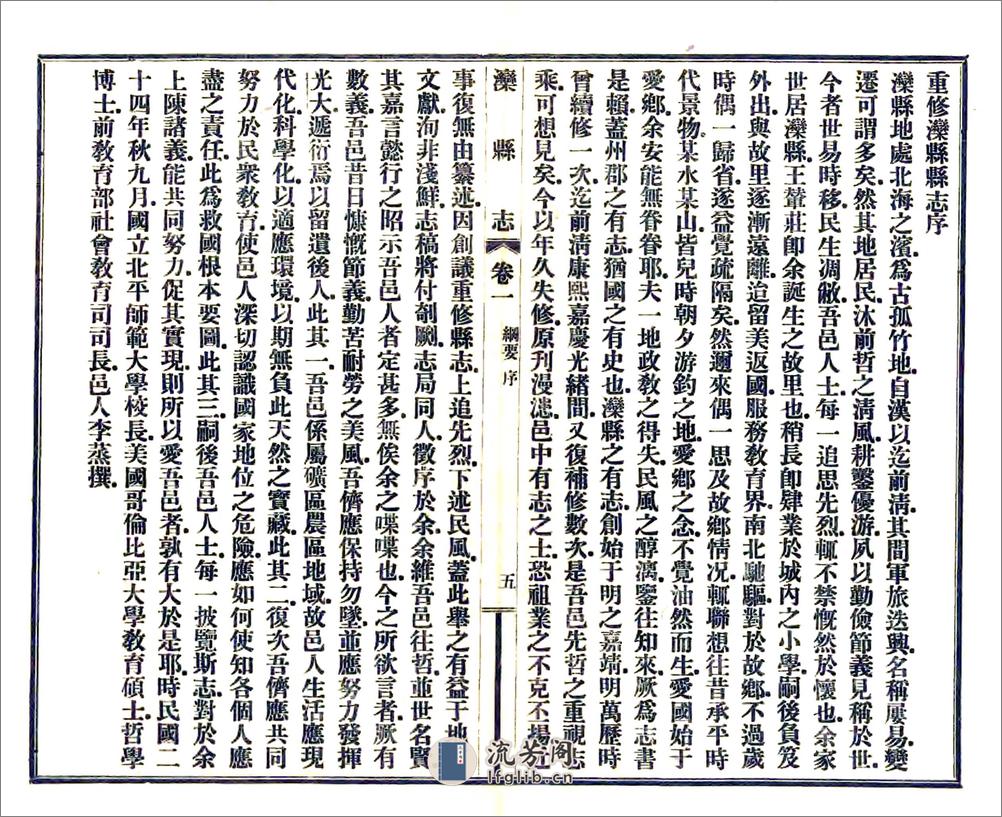 重修灤縣縣志序
灤縣地處北海之濱爲古孤竹地自漢以迄前淸其間軍旅迭興名稱屢易變
遷可謂多矣然其地居民沐前哲之淸風耕鑿優游夙以勤儉節義見稱於世
今者世易時移民生凋敝吾邑人士每一追思先烈輒不禁慨然於懷也余家
世居灤縣王輦莊卽余誕生之故里也稍長卽肄業於城內之小學嗣後負笈
外出與故里遂漸遠離迨留美返國服務敎育界南北馳驅對於故鄉不過歲
時偶一歸省遂益覺疏隔矣然邇來偶一思及故鄉情況輒聯想往昔承平時
代景物某水某山皆兒時朝夕游釣之地愛鄉之念不覺油然而生愛國始于
愛鄉余安能無眷眷耶夫一地政敎之得失民風之醇漓鑒往知來厥爲志書
是賴蓋州郡之有志猶國之有史也灤縣之有志創始于明之嘉靖明萬歷時
曾續修一次迄前淸康熙嘉慶光緖間又復補修數次是吾邑先哲之重視志
乘可想見矣今以年久失修原刊漫漶邑中有志之士恐祖業之不克丕揚
灤縣志
卷一
綱要 序
五
事復無由纂述因創議重修縣志上追先烈下述民風蓋此舉之有益于地方
文獻洵非淺鮮志稿將付剞劂志局同人徵序於余余維吾邑往哲並世名賢
其嘉言懿行之昭示吾邑人者定甚多無俟余之喋喋也今之所欲言者厥有
數義吾邑昔日慷慨節義勤苦耐勞之美風吾儕應保持勿墜並應努力發揮
光大遞衍焉以留遺後人此其一吾邑係屬礦區農區地域故邑人生活應現
代化科學化以適應環境以期無負此天然之寶藏此其二復次吾儕應共同
努力於民衆敎育使邑人深切認識國家地位之危險應如何使知各個人應
盡之責任此爲救國根本要圖此其三嗣後吾邑人士每一披覽斯志對於余
上陳諸義能共同努力促其實現則所以愛吾邑者孰有大於是耶時民國二
十四年秋九月國立北平師範大學校長美國哥倫比亞大學敎育碩士哲學
博士前敎育部社會敎育司司長邑人李蒸撰
流芳閣
lfglib.cn